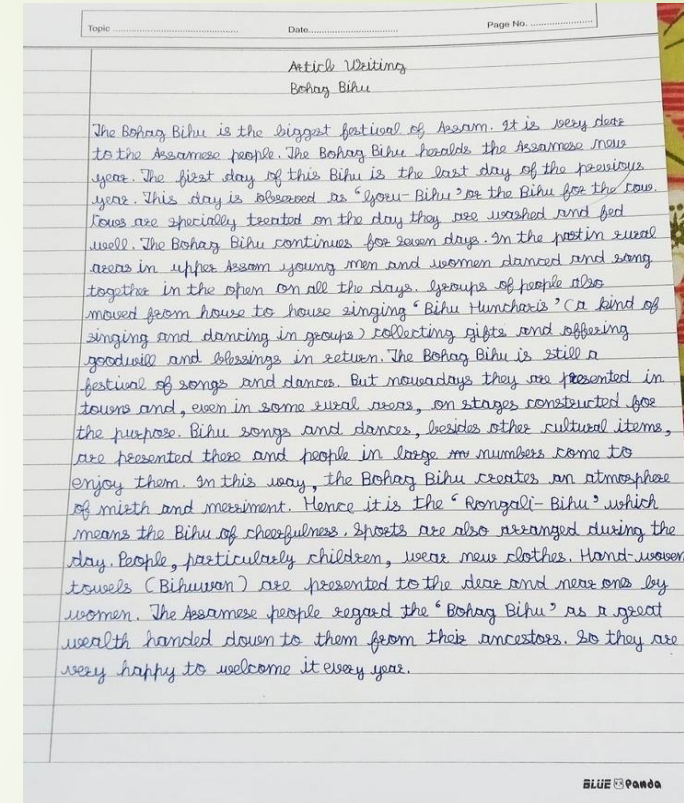 Topic
Date
Page No.
Article Writing
Bohag Bihu
The Bohag Bihu is the biggest festival of Assam. It is very dear
to the Assamese people. The Bohag Bihu heralds the Assamese new
year. The first day of this Bihu is the last day of the previous
year. This day is observed as "Goru-Bihu" or the Bihu for the cow.
Cows are specially treated on the day they are washed and fed
well. The Bohag Bihu continues for seven days. In the past in rural
areas in upper Assam young men and women danced and sang
together in the open on all the days. Groups of people also
moved from house to house singing 'Bihu Huncharis' (a kind of
singing and dancing in groups) collecting gifts and offering
goodwill and blessings in return. The Bohag Bihu is still a
festival of songs and dances. But nowadays they are presented in
towns and, even in some rural areas, on stages constructed for
the purpose. Bihu songs and dances, besides other cultural items,
are presented there and people in large numbers come to
enjoy them. In this way, the Bohag Bihu creates an atmosphere
of mirth and merriment. Hence it is the 'Rongali-Bihu' which
means the Bihu of cheerfulness. Sports are also arranged during the
day. People, particularly children, wear new clothes. Hand-woven
towels (Bihuwan) are presented to the dear and near ones by
women. The Assamese people regard the 'Bohag Bihu' as a great
wealth handed down to them from their ancestors. So they are
very happy to welcome it every year.
BLUE Panda